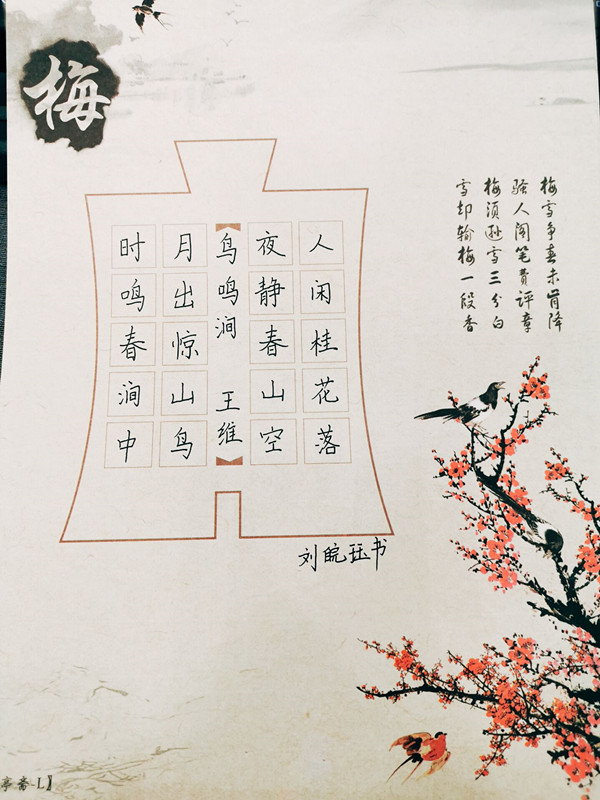 梅
梅雪争春未肯降
骚人阁笔费评章
梅须逊雪三分白
雪却输梅一段香
人闲桂花落
夜静春山空
鸟鸣涧 王维
月出惊山鸟
时鸣春涧中
刘皖珏书
亭斋-L】